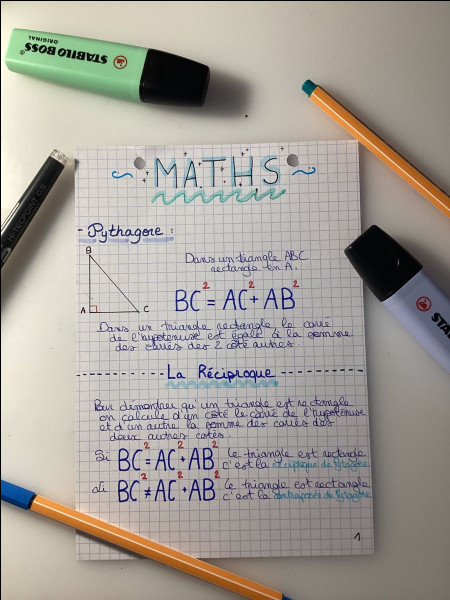 STABILO BOSS
ORIGINAL
MATHS
- Pythagore :
B
A
C
Dans un triangle ABC
rectangle en A.
BC² = AC² + AB²
Dans un triangle rectangle le carré
de l'hypoténuse est égale à la somme
des carrés des 2 côté autres.
La Réciproque
Pour démontrer qu'un triangle est rectangle
on calcule d'un côté le carré de l'hypoténuse
et d'un autre la somme des carrés des
deux autres côtés.
Si BC² = AC² + AB² le triangle est rectangle
c'est la réciproque de Pytagore
Si BC² ≠ AC² + AB² le triangle est rectangle
c'est la contraposée de Pytagore
1
STA